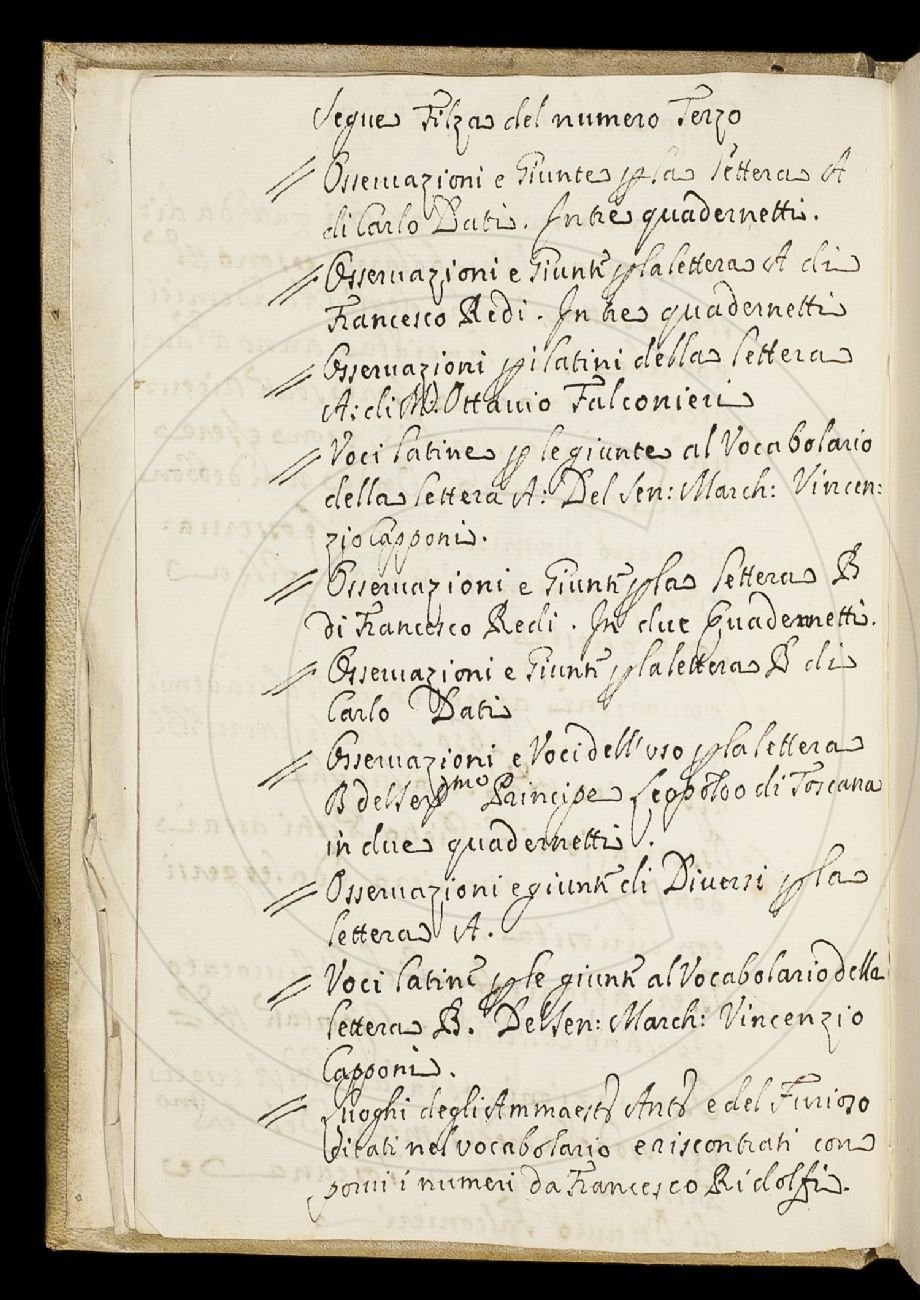 Segue Filza del numero Terzo
// Osseruazioni e Giunte p la lettera A
di Carlo Dati. In tre quadernetti.
// Osseruazioni e Giunte p la lettera A di
Francesco Redi. In tre quadernetti
// Osseruazioni p i latini della lettera
A: di M. Ottauio Falconieri
// Voci latine p le giunte al Vocabolario
della lettera A: Del Sen: March: Vincen:
zio Capponi.
// Osseruazioni e Giunte p la lettera B
di Francesco Redi. In due Quadernetti.
// Osseruazioni e Giunte p la lettera B di
Carlo Dati
// Osseruazioni e Voci dell'uso p la lettera
B del Ser.mo Principe Leopoldo di Toscana
in due quadernetti.
// Osseruazioni e giunte di Diuersi p la
lettera A.
// Voci latine p le giunte al Vocabolario della
lettera B. Del Sen: March: Vincenzio
Capponi.
// Luoghi degli Ammaest.i Ant.i e del Furioso
citati nel vocabolario e riscontrati con
porui i numeri da Francesco Ridolfi.